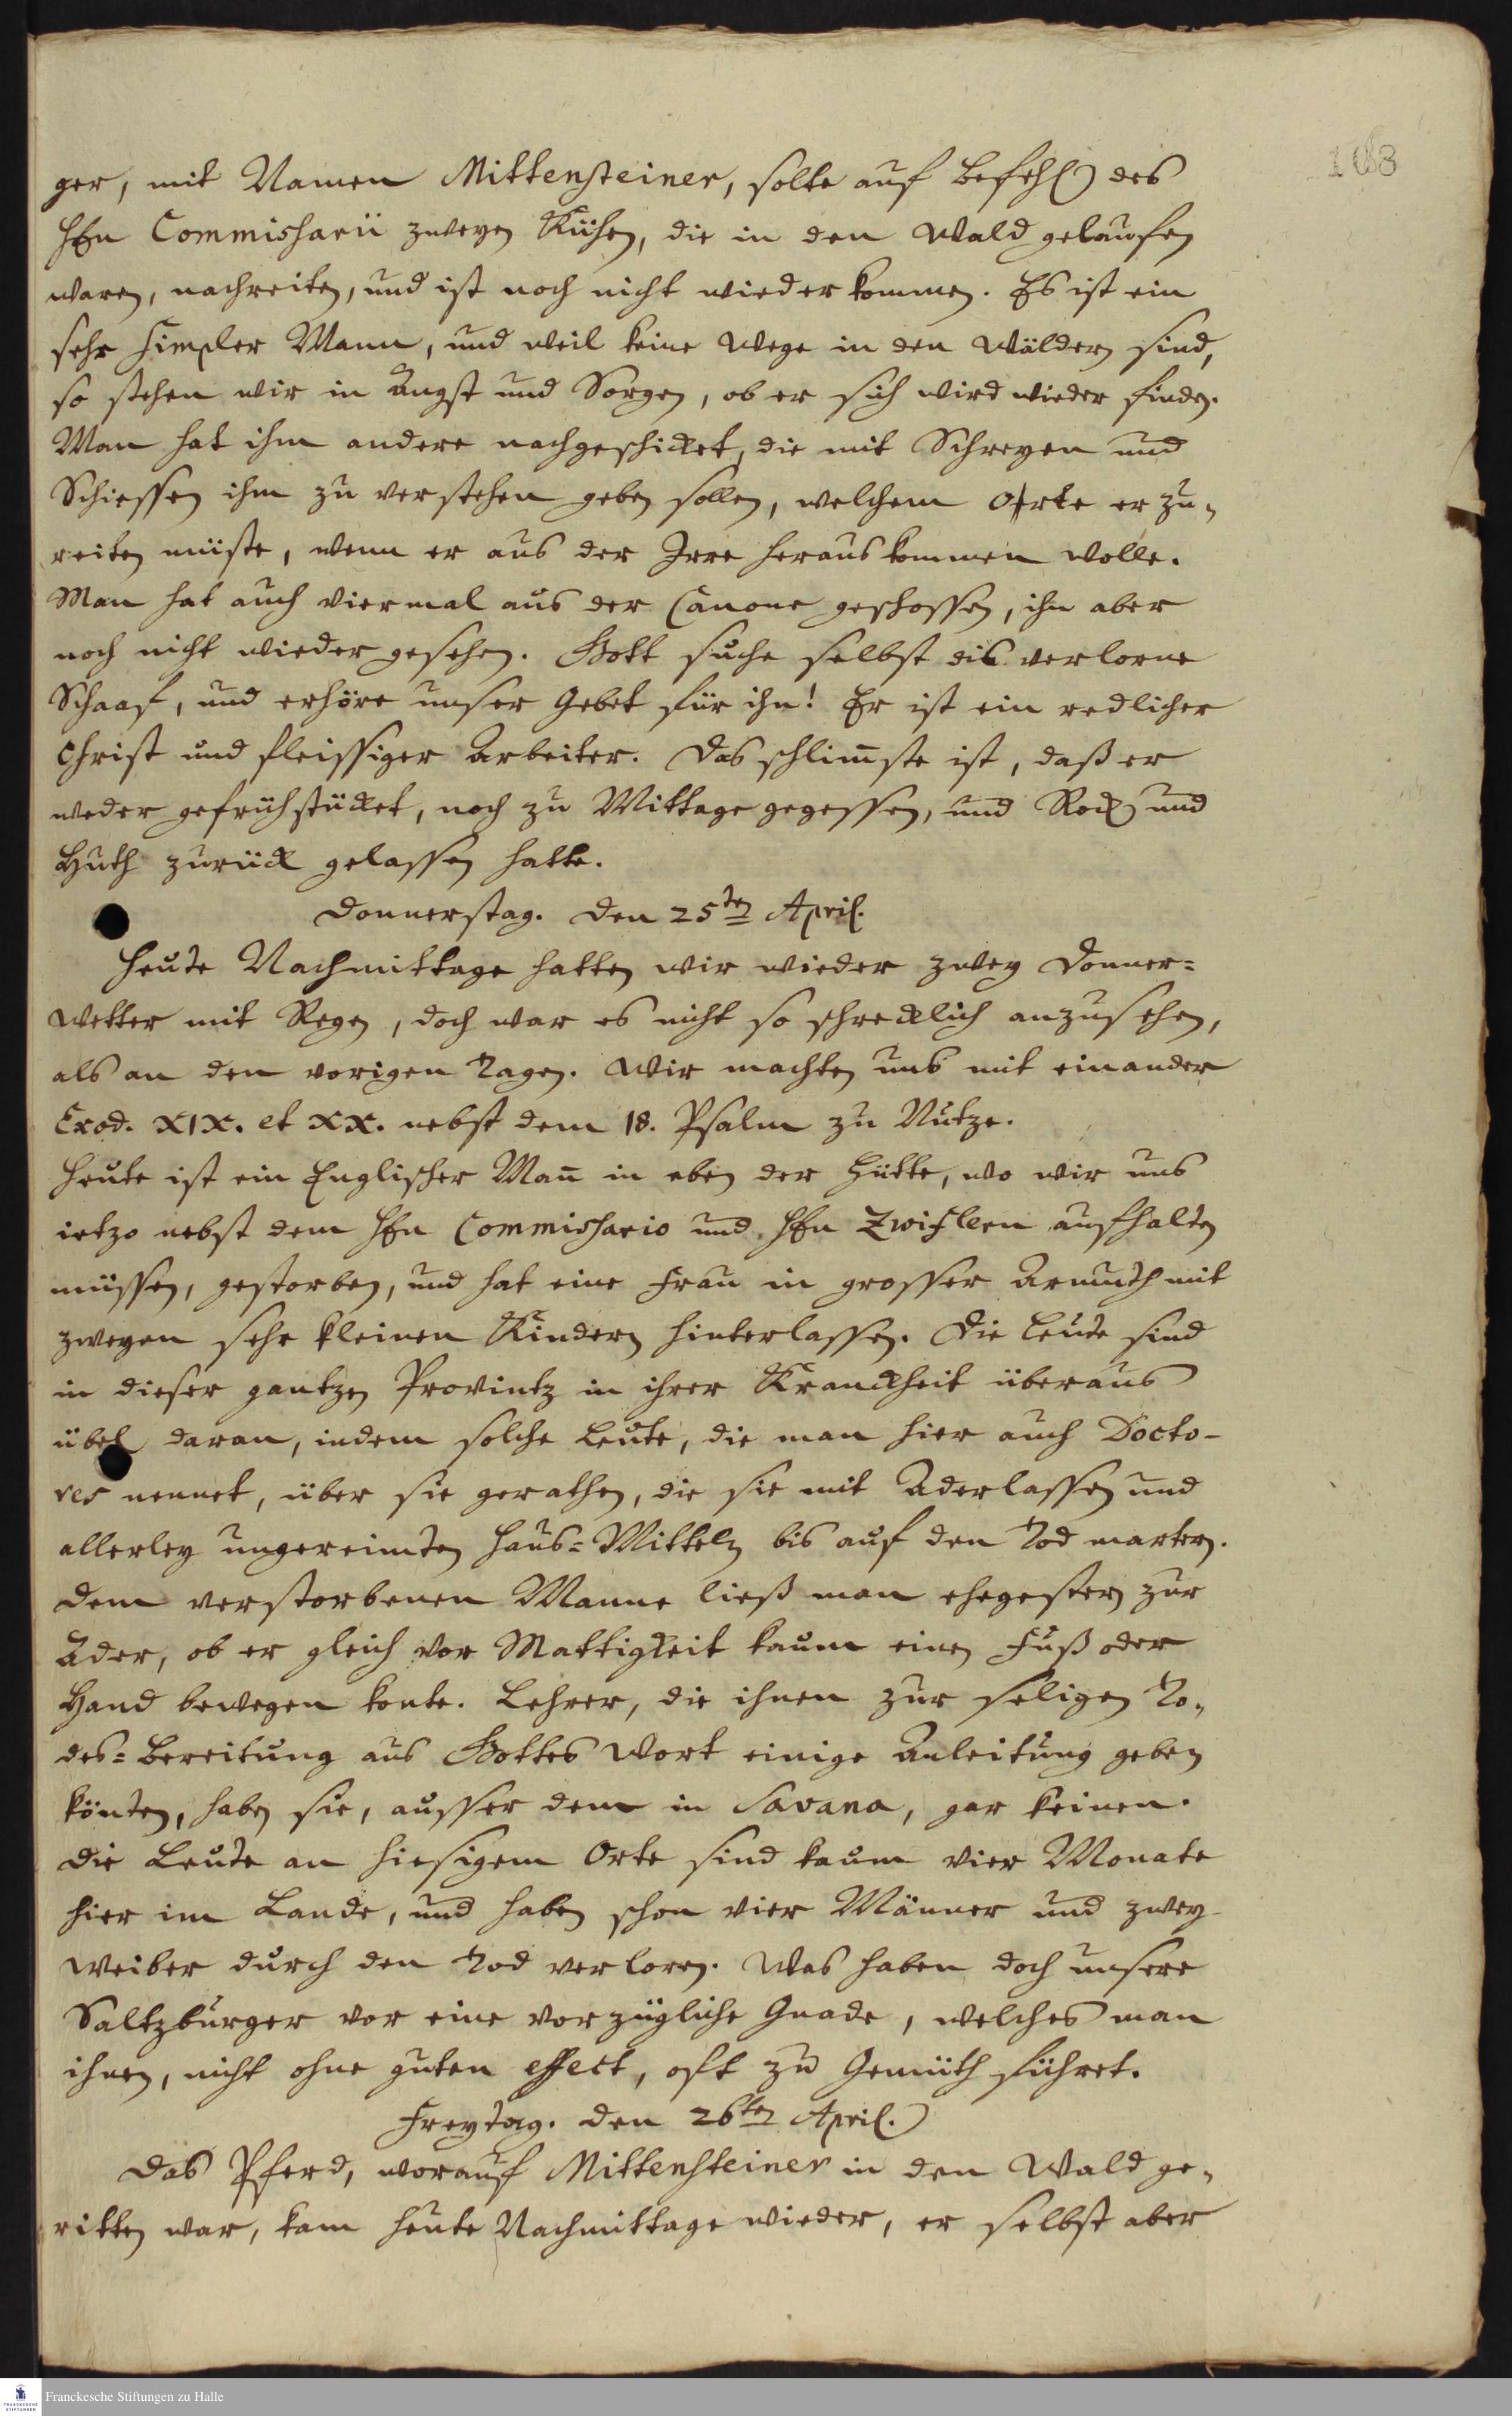 168
ger, mit Namen Mittensteiner, solte auf Befehl des
HEn Commissarii zweyen Kühen, die in den Wald gelauffen
waren, nachreiten, und ist noch nicht wieder kommen. Es ist ein
sehr simpler Mann, und weil keine Wege in den Wäldern sind,
so stehen wir in Angst und Sorgen, ob er sich wird wieder finden.
Man hat ihm andere nachgeschicket, die mit Schreyen und
Schiessen ihm zu verstehen geben sollen, welchem Orte er zu-
reiten müste, wenn er aus der Irre heraus kommen wolle.
Man hat auch viermal aus der Canone geschossen, ihn aber
noch nicht wieder gesehen. Gott suche selbst dis verlorne
Schaaf, und erhöre unser Gebet für ihn! Er ist ein redlicher
Christ und fleissiger Arbeiter. Das schlim̅ste ist, daß er
weder gefrühstücket, noch zu Mittage gegessen, und Rock und
Huth zurück gelassen hatte.
Donnerstag. den 25ten April.
Heute Nachmittage hatten wir wieder zwey Donner=
wetter mit Regen, doch war es nicht so schrecklich anzusehen,
als an den vorigen Tagen. Wir machten uns mit einander
Exod. XIX. et XX. nebst dem 18. Psalm zu Nutze.
Heute ist ein Englischer Man̅ in eben der Hütte, wo wir uns
ietzo nebst dem HEn Commissario und HEn Zwiflern aufhalten
müssen, gestorben, und hat eine Frau in grosser Armuth mit
zweyen sehr kleinen Kindern hinterlassen. Die Leute sind
in dieser gantzen Provintz in ihrer Kranckheit überaus
übel daran, indem solche Leute, die man hier auch Docto-
res nennet, über sie gerathen, die sie mit Aderlassen und
allerley ungereimten Haus=Mitteln bis auf den Tod martern.
Dem verstorbenen Manne ließ man ehegestern zur
Ader, ob er gleich vor Mattigkeit kaum einen Fuß oder
Hand bewegen konte. Lehrer, die ihnen zur seligen To-
des=Bereitung aus Gottes Wort einige Anleitung geben
könten, haben sie, ausser dem in Savana, gar keinen.
Die Leute an hiesigem Orte sind kaum vier Monate
hier im Lande, und haben schon vier Männer und zwey
Weiber durch den Tod verloren. Was haben doch unsere
Saltzburger vor eine vorzügliche Gnade, welches man
ihnen, nicht ohne guten effect, oft zu Gemüth führet.
Freytag. den 26ten April.
Das Pferd, worauf Mittensteiner in den Wald ge-
ritten war, kam heute Nachmittage wieder, er selbst aber
FRANCKESCHE
STIFTUNGEN
Franckesche Stiftungen zu Halle